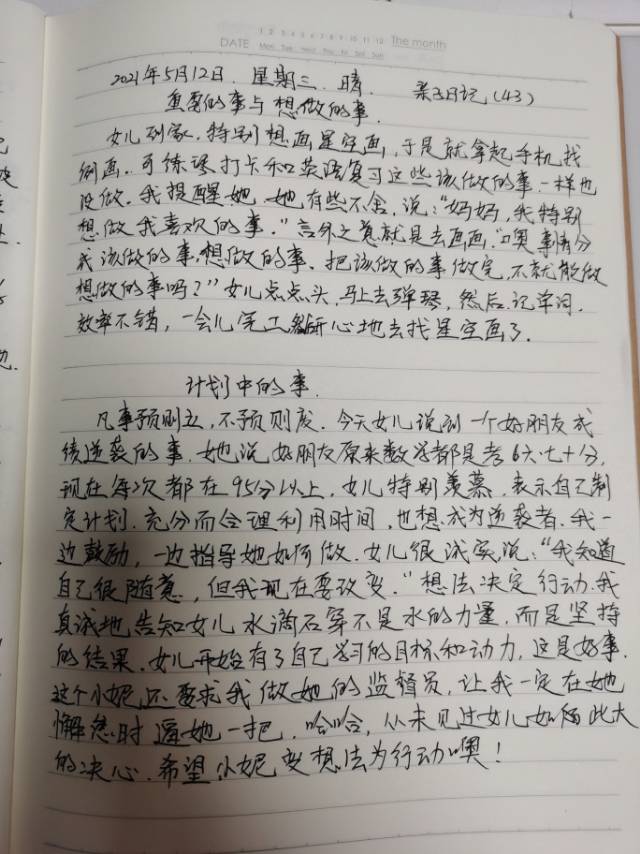 1 2 3 4 5 6 7 8 9 10 11 12 The month
DATE Mon Tue Wed Thu Fri Sat Sun
2021年5月12日. 星期三. 晴. 亲子日记(43)
重要的事与想做的事.
女儿到家, 特别想画星空画, 于是就拿起手机找
例画. 可练琴打卡和英语复习这些该做的事一样也
没做. 我提醒她, 她有些不舍, 说:“妈妈, 我特别
想做我喜欢的事.”言外之意就是去画画.“噢事情分
成该做的事.想做的事、把该做的事做完, 不就能做
想做的事吗?”女儿点点头, 马上去弹琴, 然后记单词.
效率不错, 一会儿完工, 开心地去找星空画了.
计划中的事.
凡事予则立, 不予则废. 今天女儿说到一个好朋友成
绩逆袭的事. 她说好朋友原来数学都是考6大七十分,
现在每次都在95分以上, 女儿特别羡慕. 表示自己制
定计划. 充分而合理利用时间, 也想成为逆袭者. 我一
边鼓励, 一边指导她如何做. 女儿很诚实, 说:“我知道
自己很随意, 但我现在要改变.”想法决定行动. 我
真诚地告知女儿水滴石穿不是水的力量, 而是坚持
的结果. 女儿开始有了自己学习的目标和动力, 这是好事.
这个小妮还要求我做她的监督员, 让我一定在她
懈怠时逼她一把. 哈哈, 从未见过女儿如此大
的决心. 希望小妮变想法为行动噢!